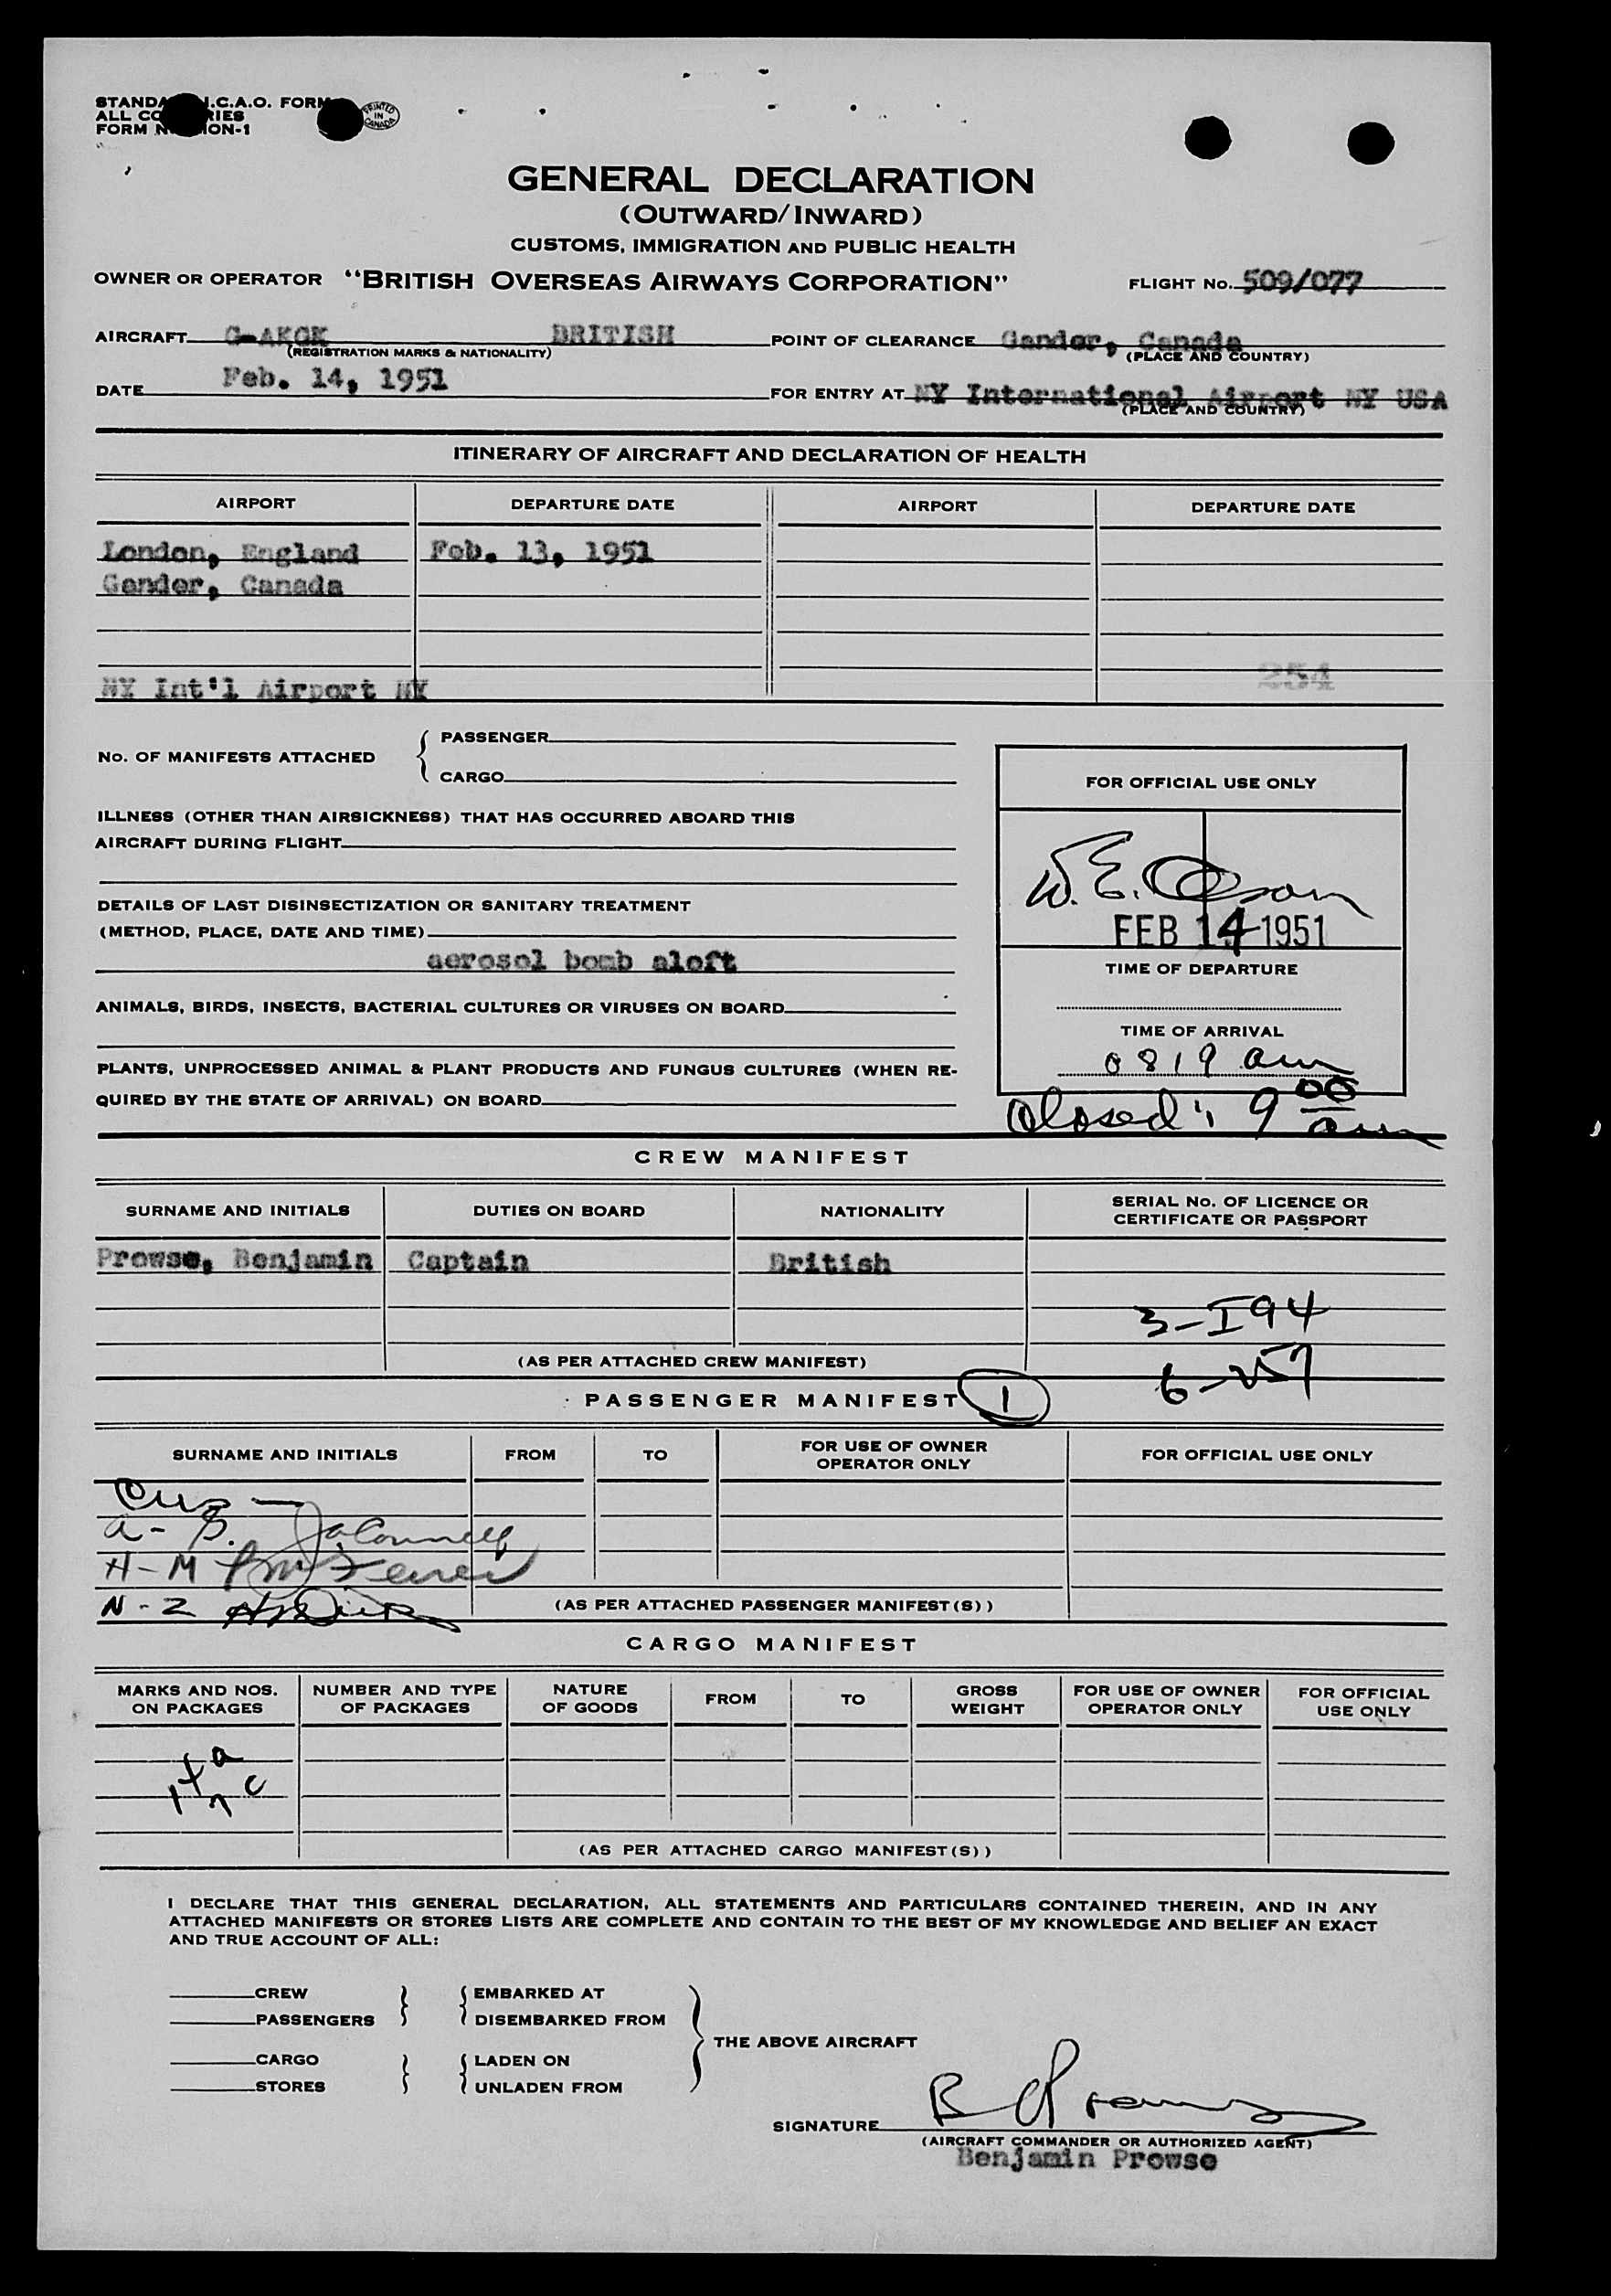 STANDA I.C.A.O. FORM
ALL CO RIES
FORM N ION-1
PRINTED
IN
CANADA
GENERAL DECLARATION
(OUTWARD/INWARD)
CUSTOMS, IMMIGRATION AND PUBLIC HEALTH
OWNER OR OPERATOR "BRITISH OVERSEAS AIRWAYS CORPORATION" FLIGHT No. 509/077
AIRCRAFT G-AKGK BRITISH POINT OF CLEARANCE Gander, Canada
(REGISTRATION MARKS & NATIONALITY) (PLACE AND COUNTRY)
DATE Feb. 14, 1951 FOR ENTRY AT NY International Airport NY USA
(PLACE AND COUNTRY)
ITINERARY OF AIRCRAFT AND DECLARATION OF HEALTH
AIRPORT DEPARTURE DATE AIRPORT DEPARTURE DATE
London, England Feb. 13, 1951
Gander, Canada
254
NY Int'l Airport NY
No. OF MANIFESTS ATTACHED
PASSENGER
CARGO
ILLNESS (OTHER THAN AIRSICKNESS) THAT HAS OCCURRED ABOARD THIS
AIRCRAFT DURING FLIGHT
DETAILS OF LAST DISINSECTIZATION OR SANITARY TREATMENT
(METHOD, PLACE, DATE AND TIME)
aerosol bomb aloft
ANIMALS, BIRDS, INSECTS, BACTERIAL CULTURES OR VIRUSES ON BOARD
PLANTS, UNPROCESSED ANIMAL & PLANT PRODUCTS AND FUNGUS CULTURES (WHEN RE-
QUIRED BY THE STATE OF ARRIVAL) ON BOARD
FOR OFFICIAL USE ONLY
W. E. Olson
FEB 14 1951
TIME OF DEPARTURE
TIME OF ARRIVAL
0819 am
Closed: 9 00 am
CREW MANIFEST
SURNAME AND INITIALS DUTIES ON BOARD NATIONALITY SERIAL No. OF LICENCE OR
CERTIFICATE OR PASSPORT
Prowse, Benjamin Captain British
3-I94
(AS PER ATTACHED CREW MANIFEST)
6-257
PASSENGER MANIFEST 1
SURNAME AND INITIALS FROM TO FOR USE OF OWNER
OPERATOR ONLY FOR OFFICIAL USE ONLY
Cus -
a - G.
H - M
N - Z
(AS PER ATTACHED PASSENGER MANIFEST(S))
CARGO MANIFEST
MARKS AND NOS.
ON PACKAGES NUMBER AND TYPE
OF PACKAGES NATURE
OF GOODS FROM TO GROSS
WEIGHT FOR USE OF OWNER
OPERATOR ONLY FOR OFFICIAL
USE ONLY
(AS PER ATTACHED CARGO MANIFEST(S))
I DECLARE THAT THIS GENERAL DECLARATION, ALL STATEMENTS AND PARTICULARS CONTAINED THEREIN, AND IN ANY
ATTACHED MANIFESTS OR STORES LISTS ARE COMPLETE AND CONTAIN TO THE BEST OF MY KNOWLEDGE AND BELIEF AN EXACT
AND TRUE ACCOUNT OF ALL:
CREW EMBARKED AT
PASSENGERS DISEMBARKED FROM
THE ABOVE AIRCRAFT
CARGO LADEN ON
STORES UNLADEN FROM
SIGNATURE B Prowse
(AIRCRAFT COMMANDER OR AUTHORIZED AGENT)
Benjamin Prowse